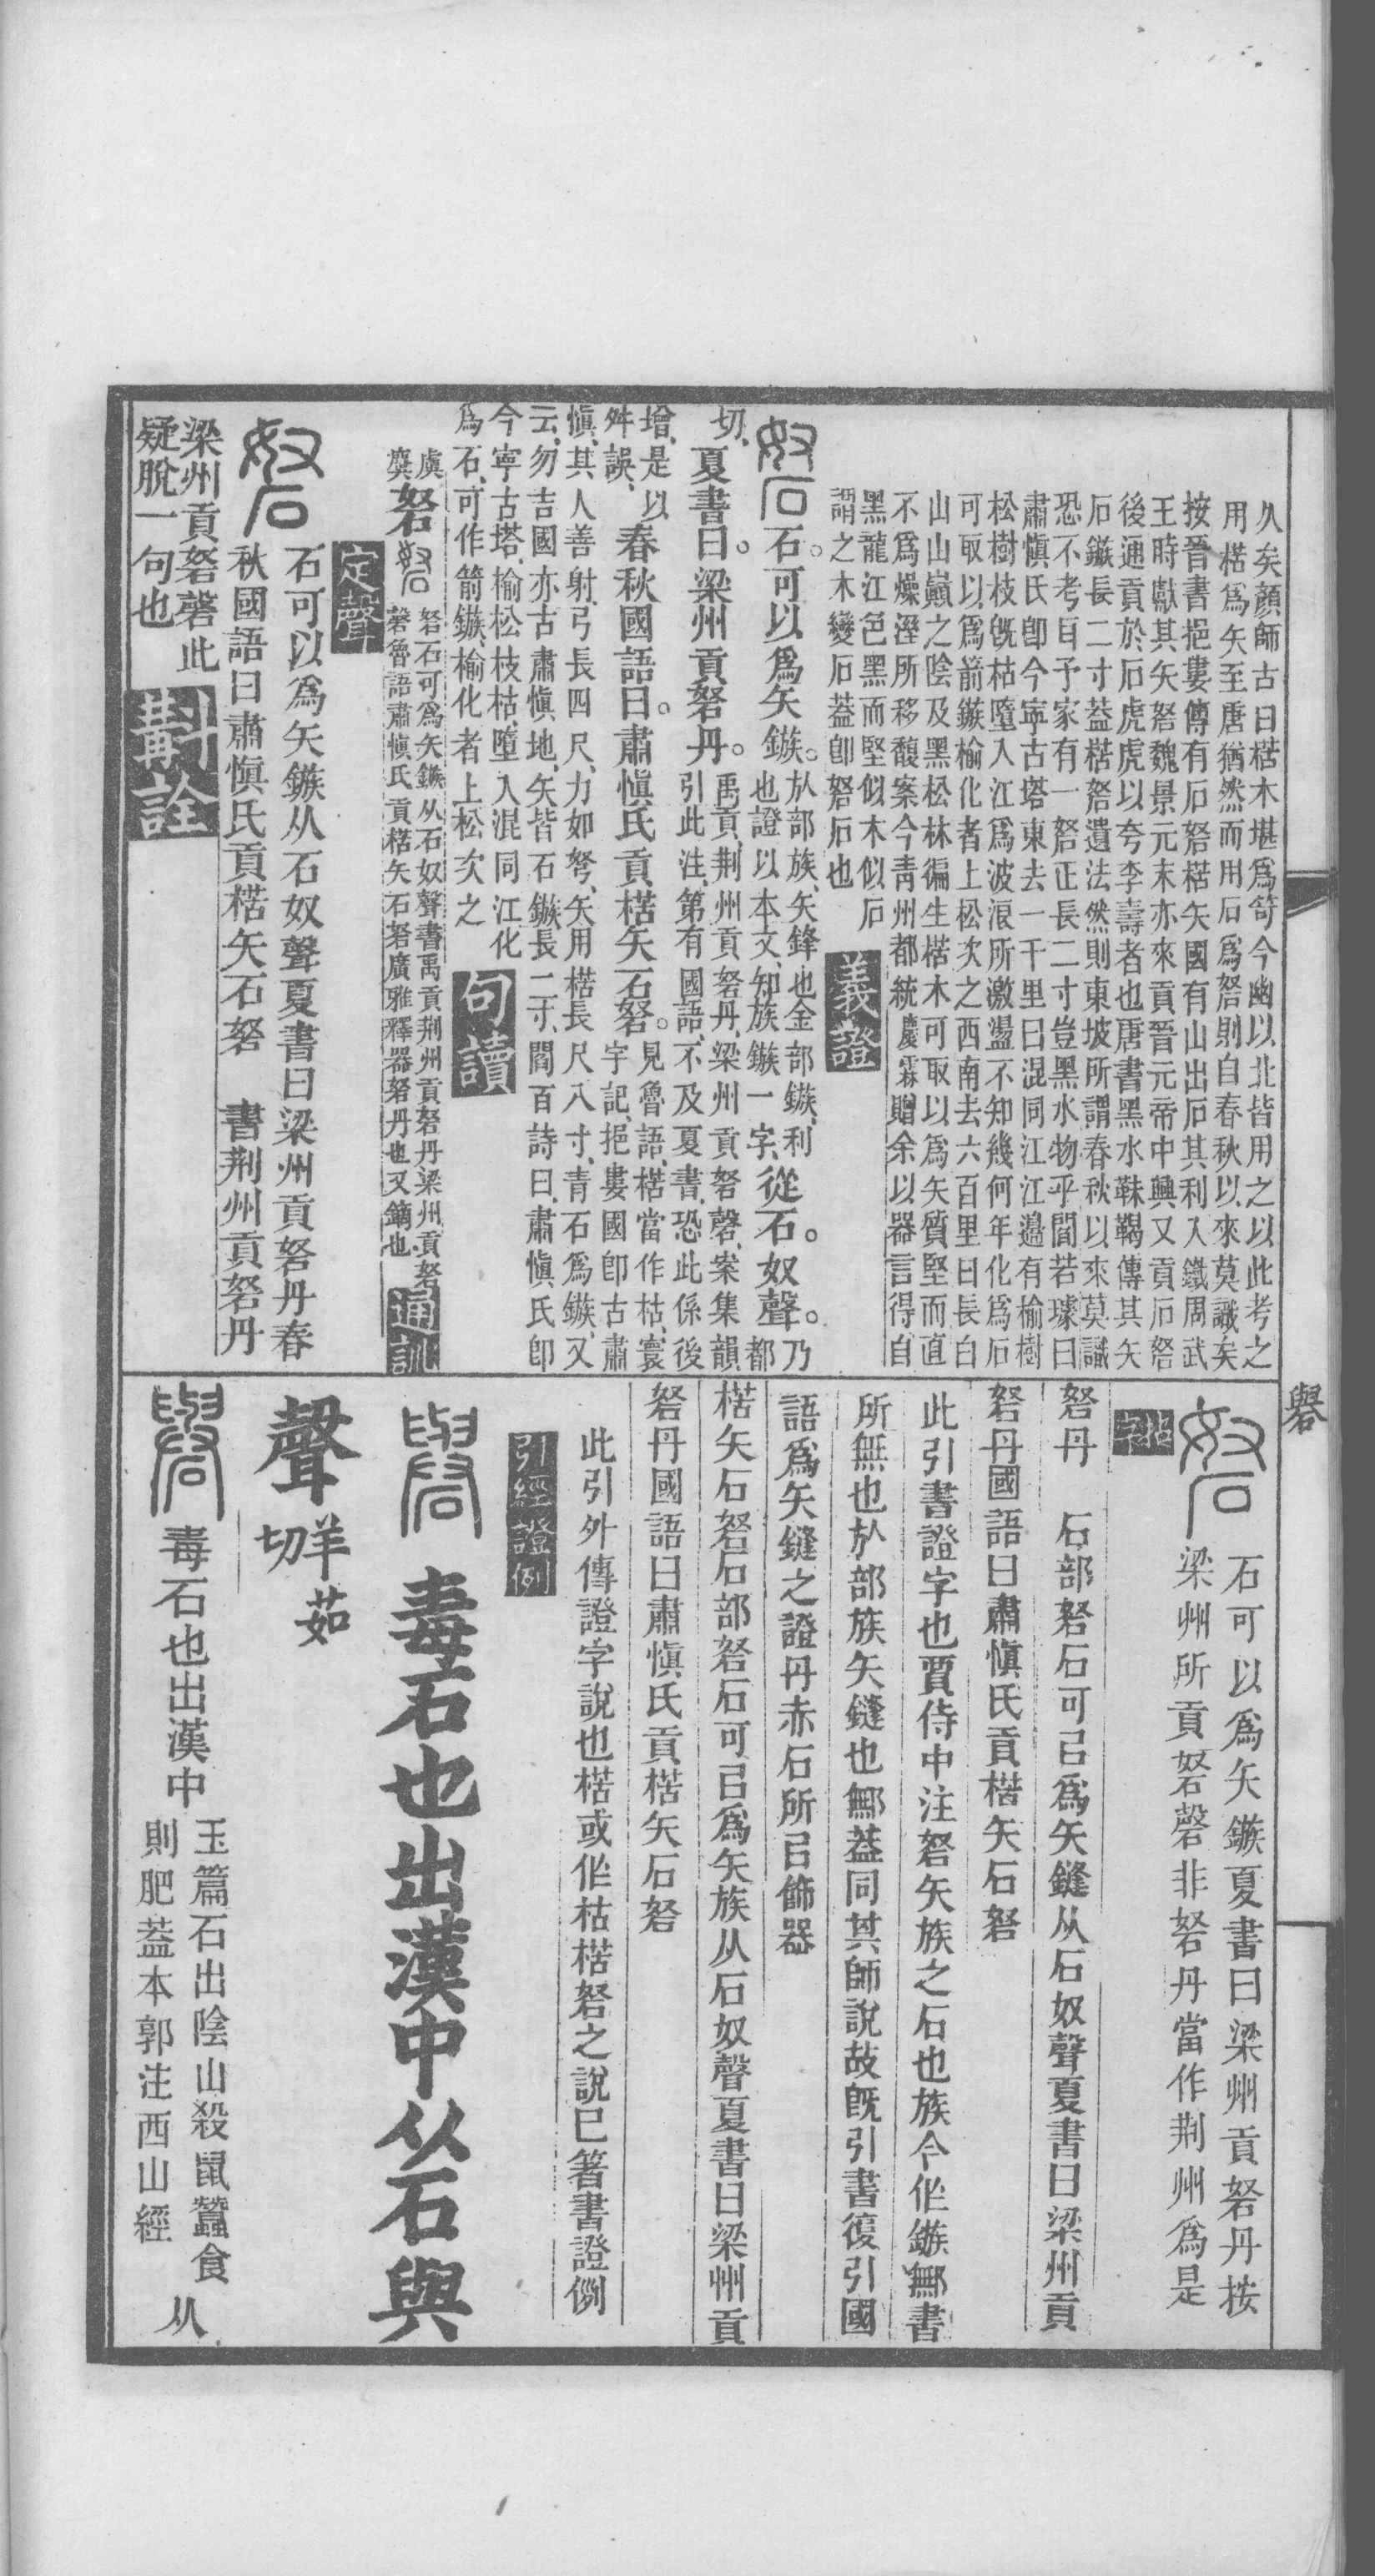 久矣顏師古曰楛木堪爲笴今幽以北皆用之以此考之
用楛爲矢至唐猶然而用石爲砮則自春秋以來莫識矣
按晉書挹婁傳有石砮楛矢國有山出石其利入鐵周武
王時獻其矢砮魏景元末亦來貢晉元帝中興又貢石砮
後通貢於石虎虎以夸李壽者也唐書黑水靺鞨傳其矢
石鏃長二寸葢楛砮遺法然則東坡所謂春秋以來莫識
恐不考耳予家有一砮正長二寸豈黑水物乎閻若璩曰
肅愼氏卽今寧古塔東去一千里曰混同江江邉有榆樹
松樹枝旣枯墮入江爲波浪所激盪不知幾何年化爲石
可取以爲箭鏃榆化者上松次之西南去六百里曰長白
山山巔之陰及黑松林徧生楛木可取以爲矢質堅而直
不爲燥溼所移馥案今青州都統慶霖贈余以器言得自
黑龍江色黑而堅似木似石
謂之木變石葢卽砮石也
義證
砮石。可以爲矢鏃。㫃部族、矢鋒也金部鏃、利
也證以本文、知族鏃一字、從石。奴聲。乃都
切、夏書曰。梁州貢砮丹。禹貢、荆州貢砮丹、梁州貢砮磬、案集韻
引此注、第有國語、不及夏書、恐此係後
增、是以
舛誤、春秋國語曰。肅愼氏貢楛矢石砮。見魯語、楛當作枯、寰
宇記、挹婁國卽古肅
愼、其人善射、弓長四尺、力如弩、矢用楛長尺八寸、青石爲鏃、又
云、勿吉國亦古肅愼地、矢皆石鏃長二寸、閻百詩曰、肅愼氏卽
今寧古塔、榆松枝枯、墮入混同江化
爲石、可作箭鏃、榆化者上松次之
句讀
虞
䮤砮砮砮石可爲矢鏃从石奴聲書禹貢荆州貢砮丹梁州貢砮
磬魯語肅愼氏貢楛矢石砮廣雅釋器砮丹也又鏑也
通訓
定聲
砮石可以爲矢鏃从石奴聲夏書曰梁州貢砮丹春
秋國語曰肅愼氏貢楛矢石砮　書荆州貢砮丹
梁州貢砮磬此
疑脫一句也
斠詮
礜
砮石可以爲矢鏃夏書曰梁州貢砮丹按
梁州所貢砮磬非砮丹當作荆州爲是
拈字
砮丹　石部砮石可㠯爲矢鏠从石奴聲夏書曰梁州貢
砮丹國語曰肅愼氏貢楛矢石砮
此引書證字也賈侍中注砮矢族之石也族今作鏃鄦書
所無也㫃部族矢鏠也鄦葢同其師說故旣引書復引國
語爲矢鏠之證丹赤石所㠯飾器
楛矢石砮石部砮石可㠯爲矢族从石奴聲夏書曰梁州貢
砮丹國語曰肅愼氏貢楛矢石砮
此引外傳證字說也楛或作枯楛砮之說已箸書證例
引經證例
礜毒石也出漢中从石與
聲羊茹
切
礜毒石也出漢中玉篇石出陰山殺鼠蠶食
則肥葢本郭注西山經从